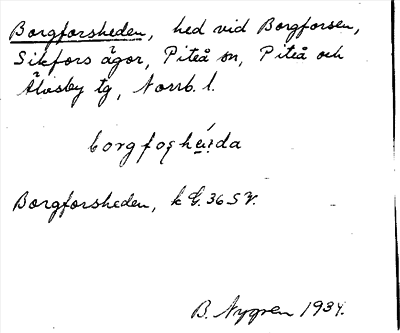 Borgforsheden, hed vid Borgforsen,
Sikfors ägor, Piteå sn, Piteå och
Älvsby tg, Norrb. l.
Borgforsheden, k E. 36 SV.
B. Nygren 1934.